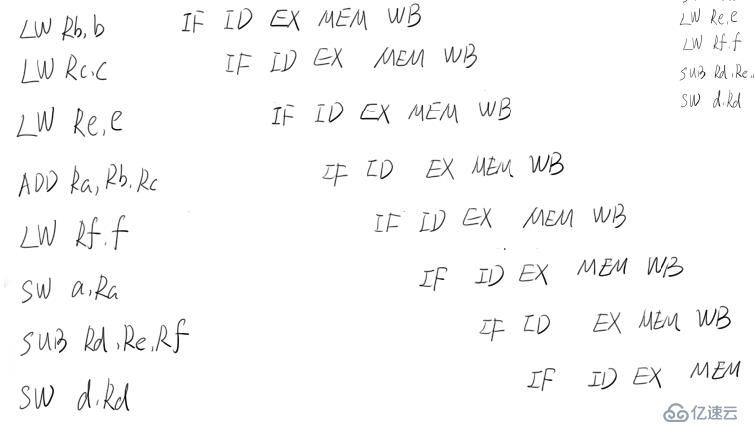 LW Rb,b IF ID EX MEM WB
LW Rc,c IF ID EX MEM WB
LW Re,e IF ID EX MEM WB
ADD Ra,Rb,Rc IF ID EX MEM WB
LW Rf,f IF ID EX MEM WB
SW a,Ra IF ID EX MEM WB
SUB Rd,Re,Rf IF ID EX MEM WB
SW d,Rd IF ID EX MEM
LW Re,e
LW Rf,f
SUB Rd,Re,
SW d,Rd
亿速云